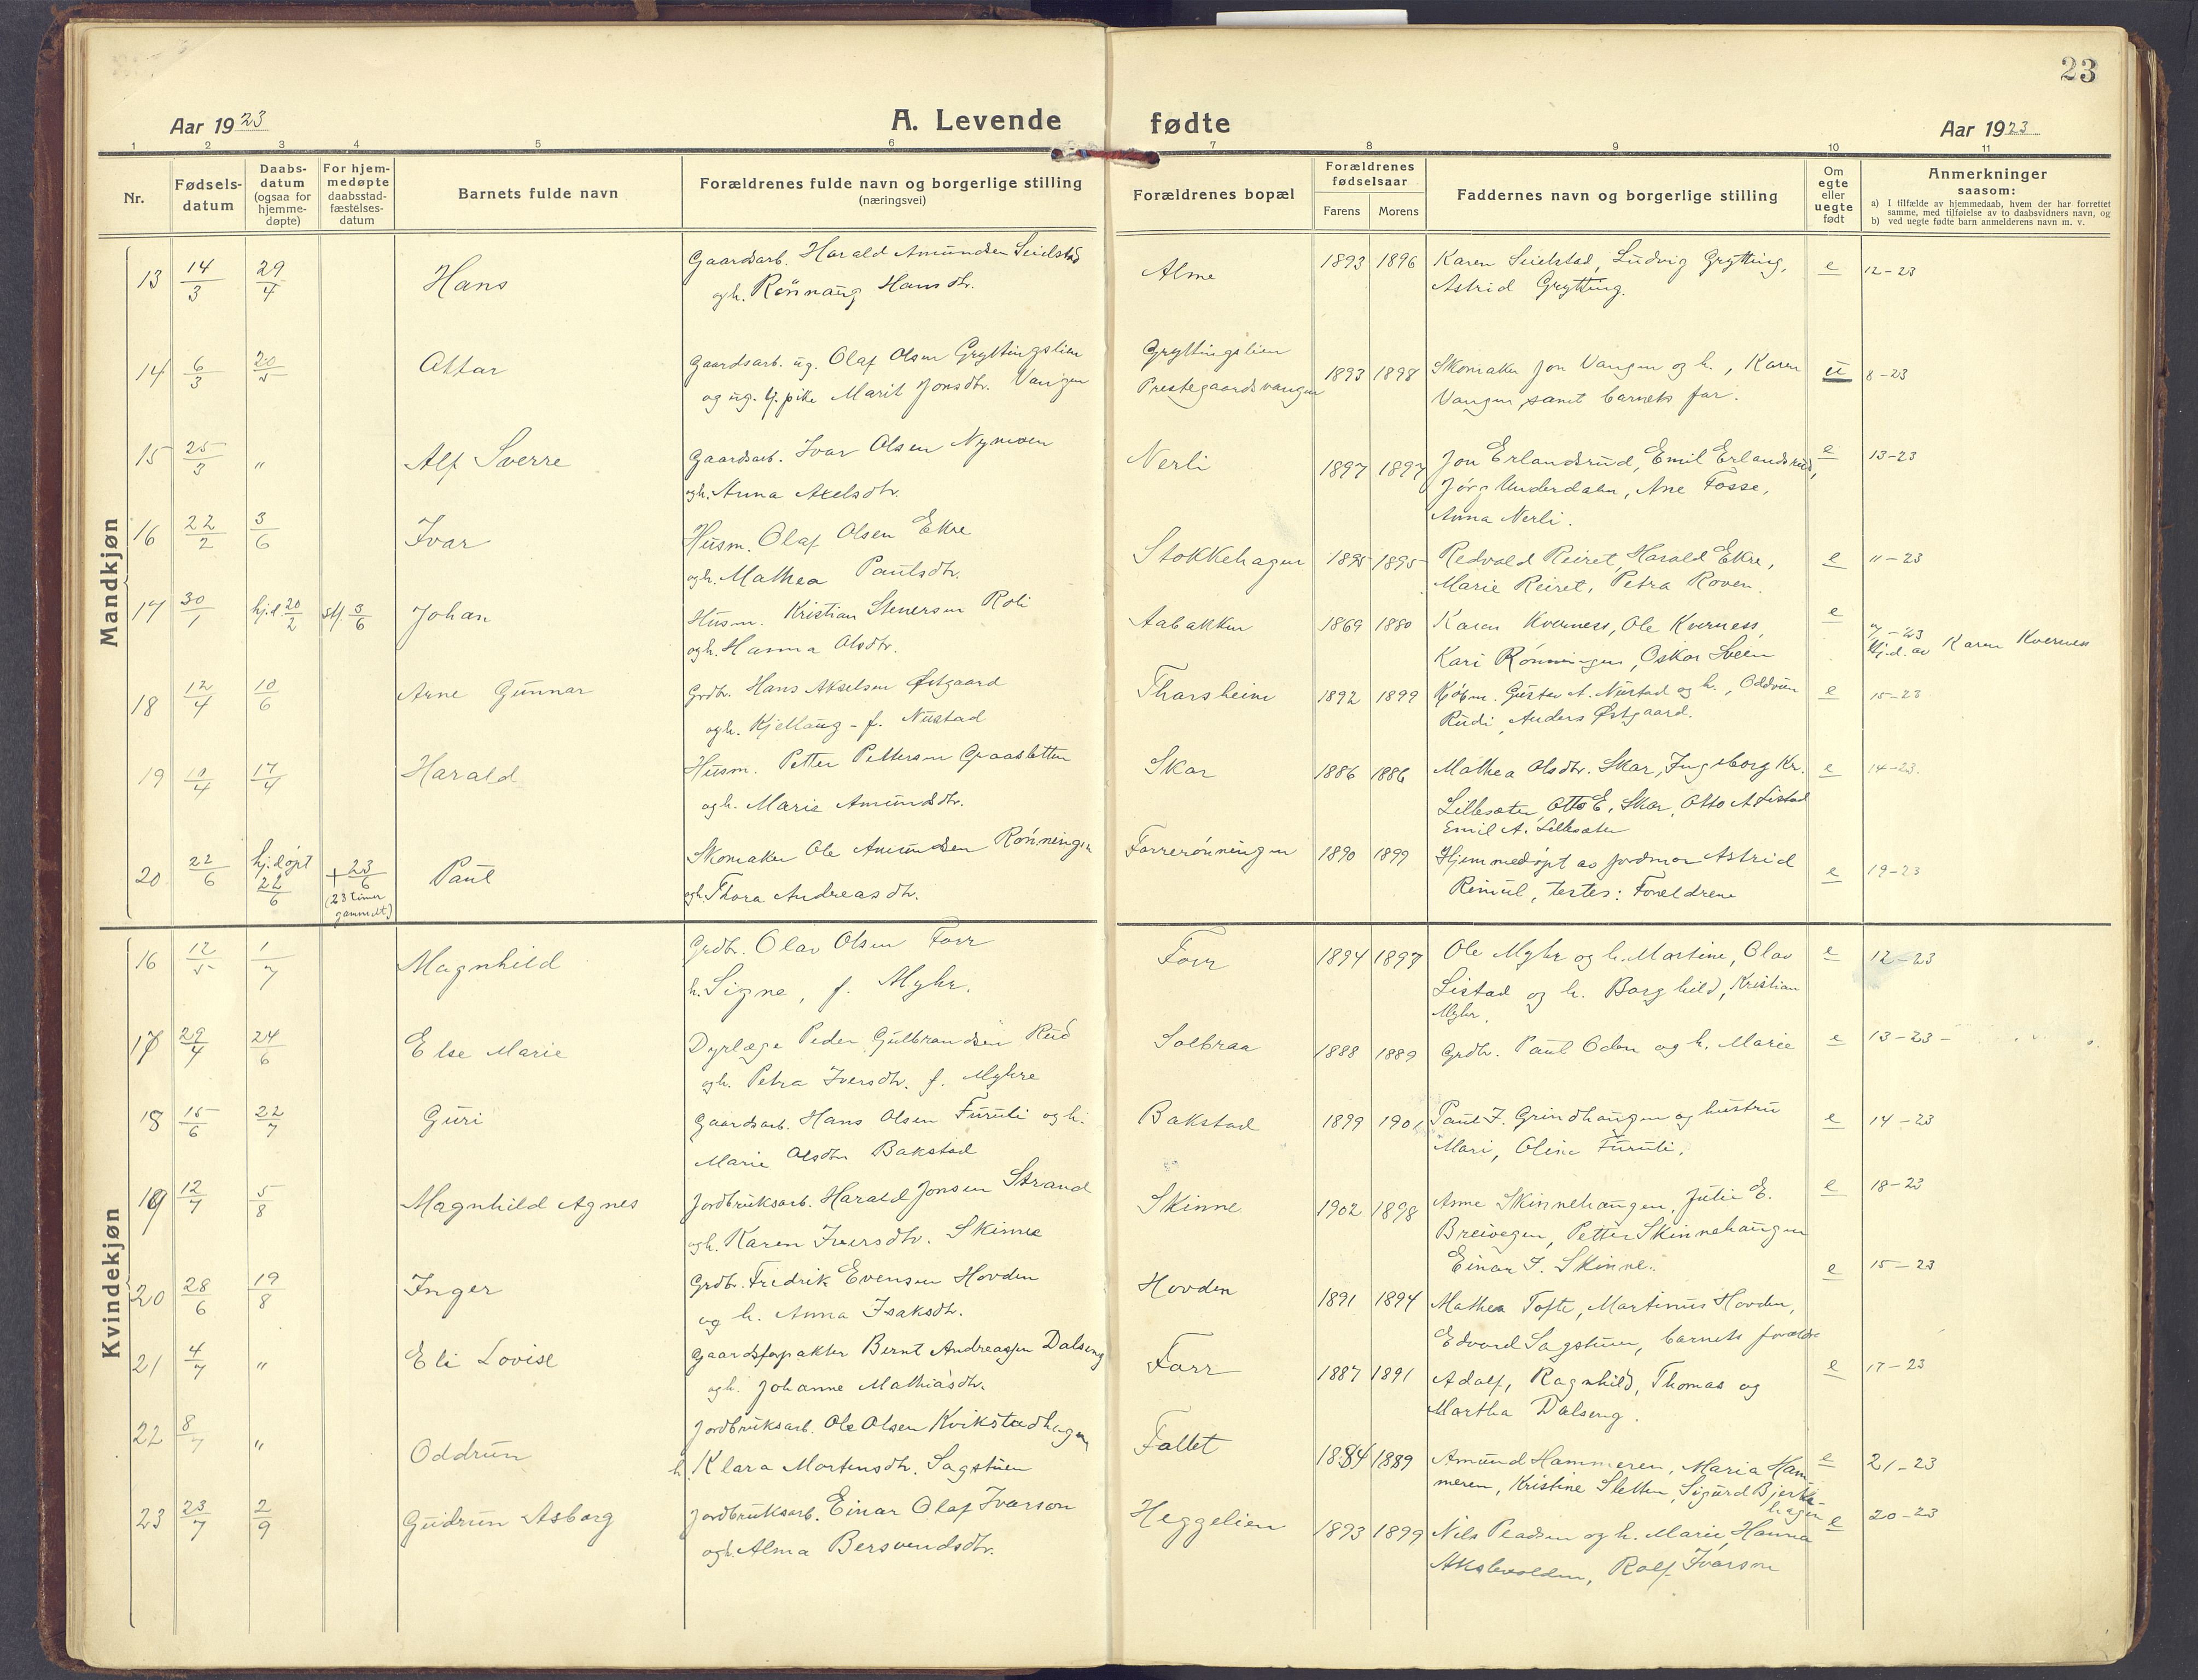 23
Aar 1923
A. Levende fødte
Aar 1923
1 2 3 4 5 6 7 8 9 10 11
Nr.
Fødsels-
datum
Daabs-
datum
(ogsaa for
hjemme-
døpte)
For hjem-
medøpte
daabsstad-
fæstelses-
datum
Barnets fulde navn
Forældrenes fulde navn og borgerlige stilling
(næringsvei)
Forældrenes bopæl
Forældrenes
fødselsaar
Farens Morens
Faddernes navn og borgerlige stilling
Om
egte
eller
uegte
født
Anmerkninger
saasom:
a) I tilfælde av hjemmedaab, hvem der har forrettet
samme, med tilføielse av to daabsvidners navn, og
b) ved uegte fødte barn anmelderens navn m. v.
Mandkjøn
13 14/3 29/4 Hans
Gaardsarb. Harald Amundsen Seielstad
ogh. Rönnaug Hansdtr.
Alme 1893 1896
Karen Seielstad, Ludvig Grytting,
Astrid Grytting.
e 12-23
14 6/3 20/5 Ottar
Gaardsarb. ug. Olaf Olsen Gryttingslien
og ug. tj. pike Marit Jonsdtr. Vangen
Gryttingslien
Prestegaardsvangen
1893 1898
Skomaker Jon Vangen og h., Karen
Vangen samt barnets far.
u 8-23
15 25/3 " Alf Sverre
Gaardsarb. Ivar Olsen Nymoen
ogh. Anna Axelsdtr.
Nerli 1897 1897
Jon Erlandsrud, Emil Erlandsrud,
Jörg Underdalen, Ane Fosse,
Anna Nerli.
e 13-23
16 22/2 3/6 Ivar
Husm. Olaf Olsen Ekre
ogh. Mathea Paulsdtr.
Stokkehagen 1895 1895
Redvald Reiret, Harald Ekre,
Marie Reiret, Petra Roven.
e 11-23
17 30/1 hj.d. 20/2 stf. 3/6 Johan
Husm. Kristian Stenersen Roli
ogh. Hanna Olsdtr.
Aabakken 1869 1880
Karen Kverness, Ole Kverness,
Kari Rönningen, Oskar Sveen
e 7-23
Hj.d. av Karen Kvernes
18 12/4 10/6 Arne Gunnar
Grdbr. Hans Akselsen Østgaard
ogh. Kjellaug - f. Nustad
Tharsheim 1892 1899
Kjøbm. Gustav A. Nustad og h., Oddrun
Rudi, Anders Østgaard.
e 15-23
19 10/4 17/4 Harald
Husm. Petter Pettersen Graasletten
ogh. Marie Amundsdtr.
Skar 1886 1886
Mathea Olsdtr. Skar, Ingeborg Kr.
Lillesæter, Otto E. Skar, Otto A Listad
Emil A. Lillesæter
e 14-23.
20 22/6 hj.døpt 22/6 + 23/6 (23 timer gammelt) Paul
Skomaker Ole Amundsen Rönningen
ogh. Thora Andreasdtr.
Forrerönningen 1890 1899
Hjemmedøpt av jordmor Astrid
Rimul, testes: Foreldrene
e 19-23
Kvindekjøn
16 12/5 1/7 Magnhild
Grdbr. Olav Olsen Forr
h. Signe, f. Myhr.
Forr 1894 1897
Ole Myhr og h. Martine, Olav
Listad og h. Borghild, Kristian
Myhr.
e 12-23
17 29/4 24/6 Else Marie
Dyrlæge Peder Gulbrandsen Rud
ogh. Petra Iversdtr. f. Myhre
Solbraa 1888 1889
Grdbr. Paul Oden og h. Marie
e 13-23-
18 15/6 22/7 Guri
Gaardsarb. Hans Olsen Furuli og h.
Marie Olsdtr Bakstad
Bakstad 1899 1901
Paul J. Grindhaugen og hustru
Mari, Oline Furuli.
e 14-23
19 12/7 5/8 Magnhild Agnes
Jordbruksarb. Harald Jonsen Strand
ogh. Karen Iversdtr. Skinne
Skinne 1902 1898
Anne Skinnehaugen, Julie E.
Breivegen, Petter Skinnehaugen
Einar I. Skinne.
e 18-23
20 28/6 19/8 Inger
Grdbr. Fredrik Evensen Hovden
og h. Anna Isaksdtr.
Hovden 1891 1894
Mathea Tofte, Martinus Hovden,
Edvard Sagstuen, barnets foreldre
e 15-23
21 4/7 " Eli Lovise
Gaardsforpakter Bernt Andreassen Dalseng
ogh. Johanne Mathiasdtr.
Forr 1887 1891
Adolf, Ragnhild, Thomas og
Martha Dalseng.
e 17-23
22 8/7 " Oddrun
Jordbruksarb. Ole Olsen Kvikstadhagen
h. Klara Mortensdtr. Sagstuen
Fallet 1884 1889
Amund Hammeren, Maria Ham-
meren, Kristine Sletten, Sigurd Bjerke-
hagen
e 21-23
23 23/7 2/9 Gudrun Asborg
Jordbruksarb. Einar Olaf Ivarson
ogh. Alma Bersvendsdtr.
Heggelien 1893 1899
Nils og h. Marie, Hanna
Rolf Ivarson
e 20-23